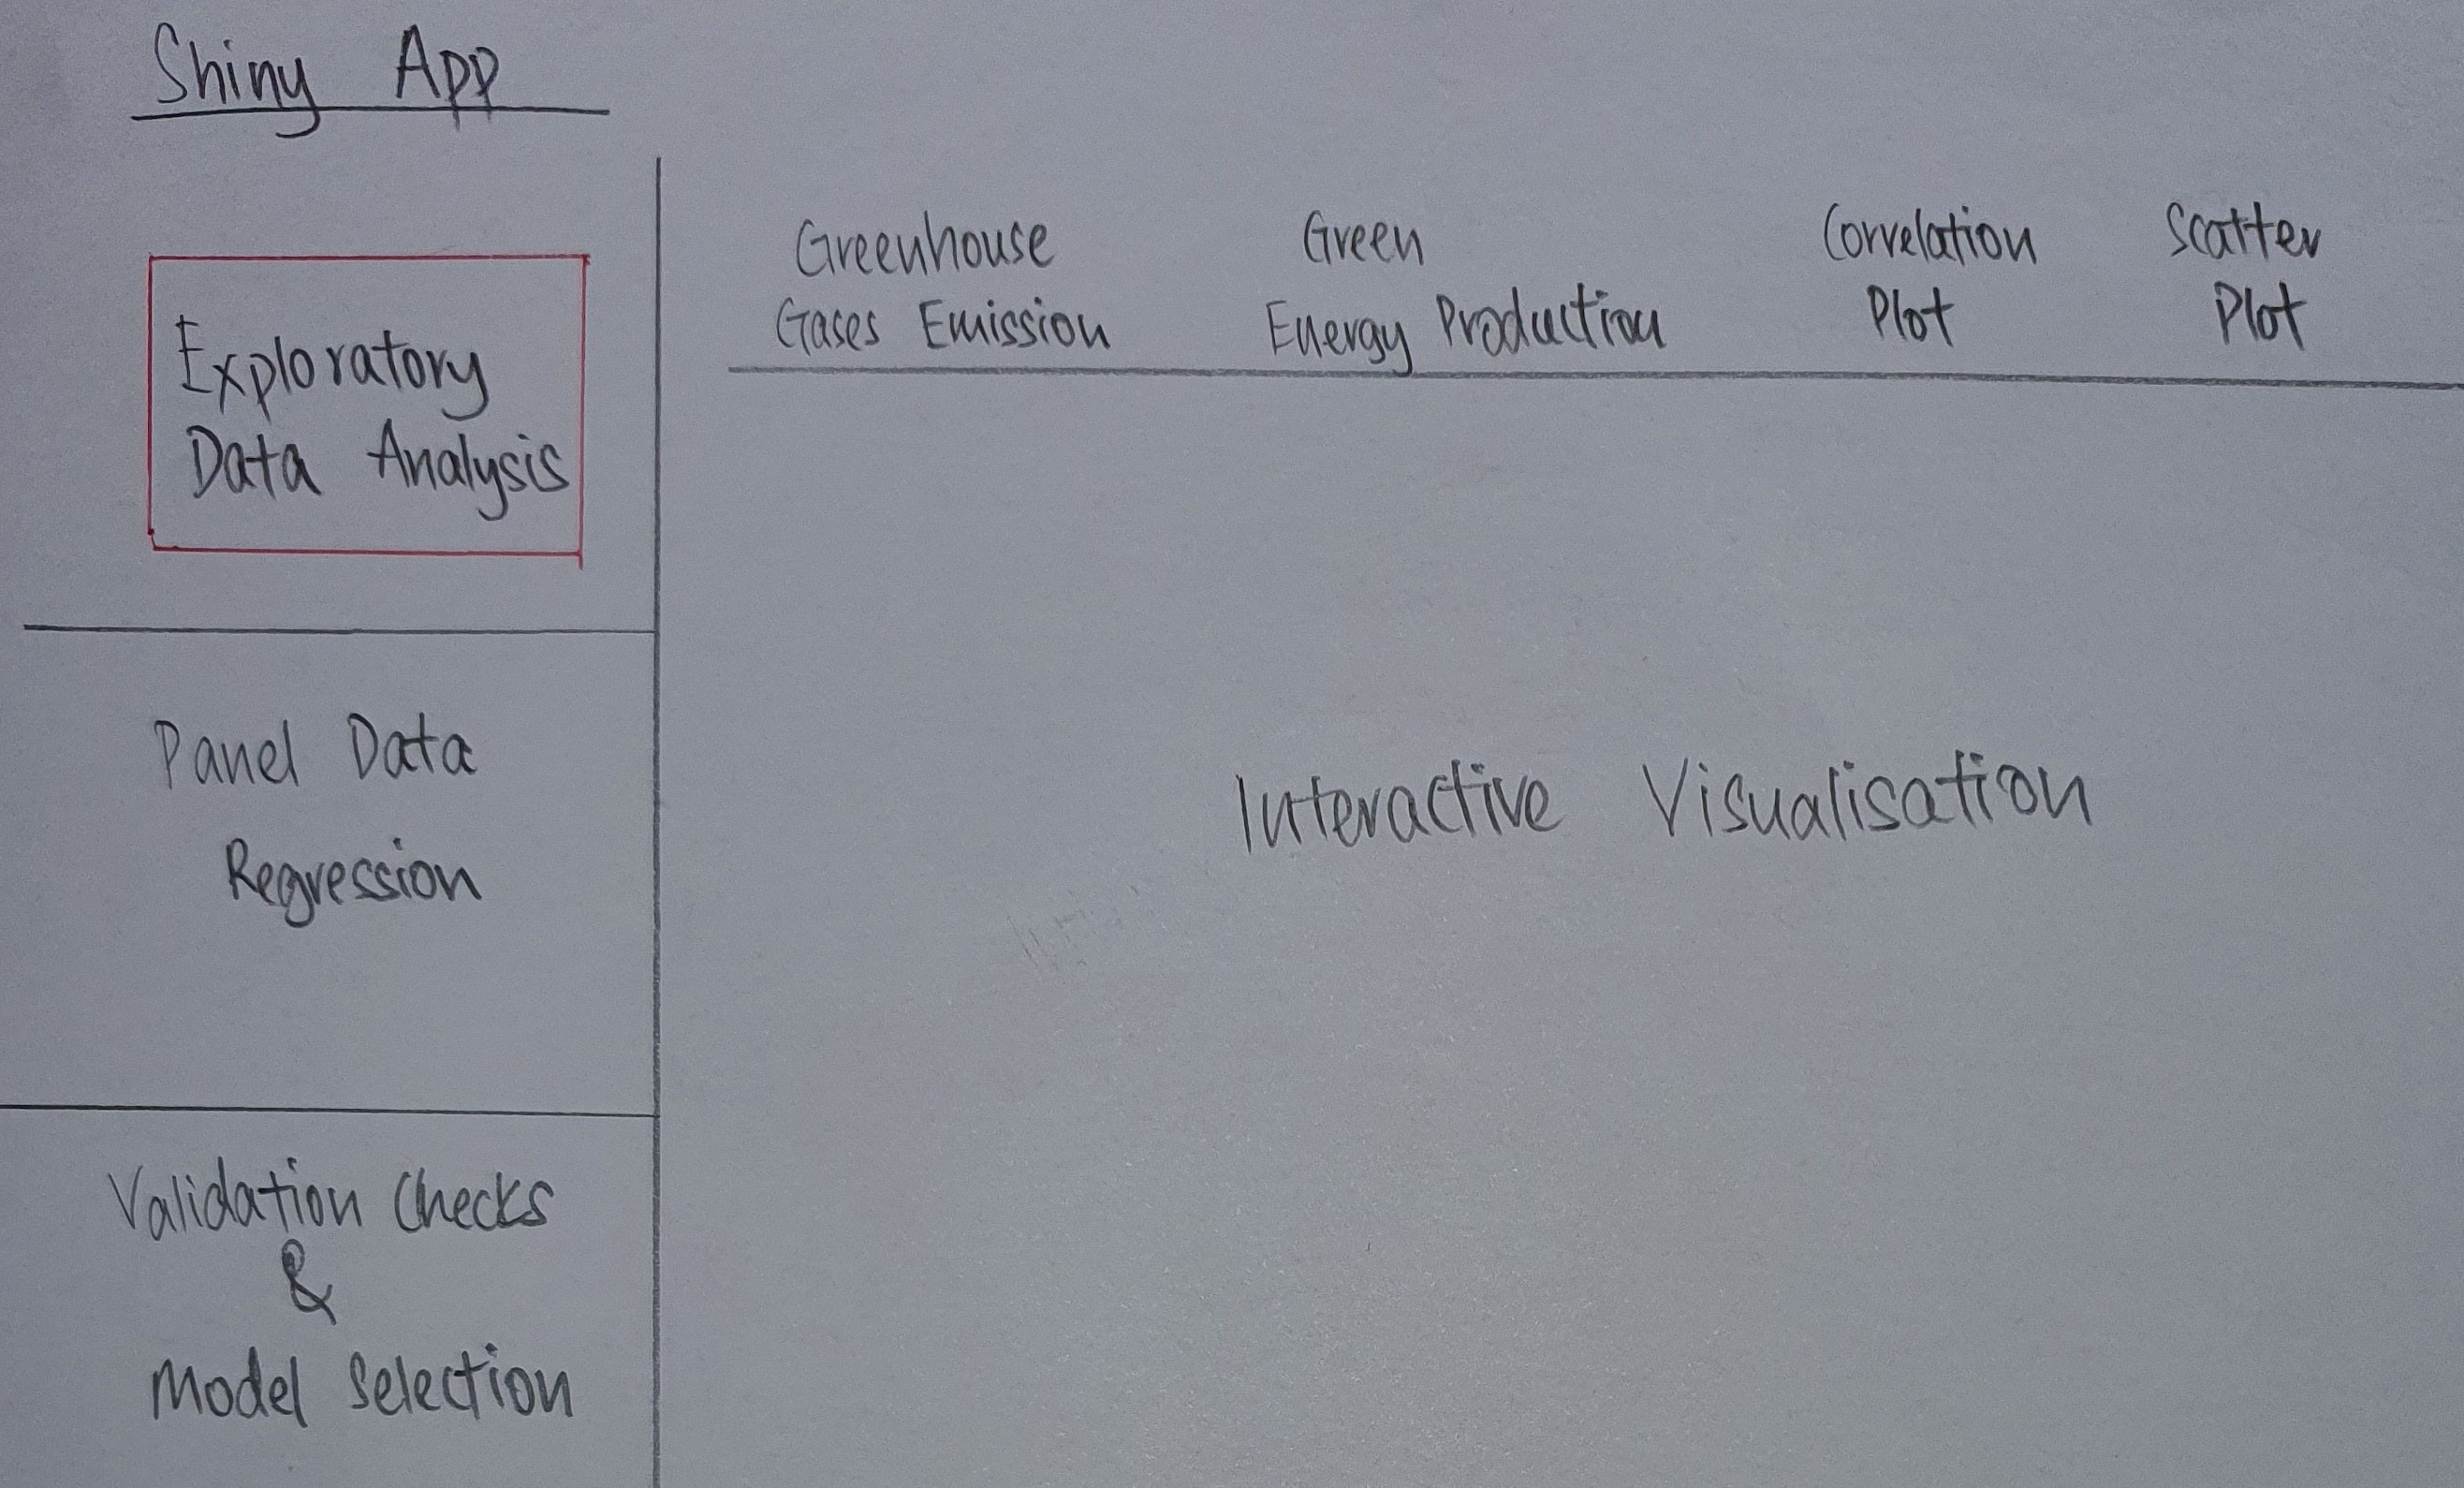 Shiny App
Exploratory
Data Analysis
Panel Data
Regression
Validation Checks
&
Model Selection
Greenhouse
Gases Emission
Green
Energy Production
Correlation
Plot
Scatter
Plot
Interactive Visualisation